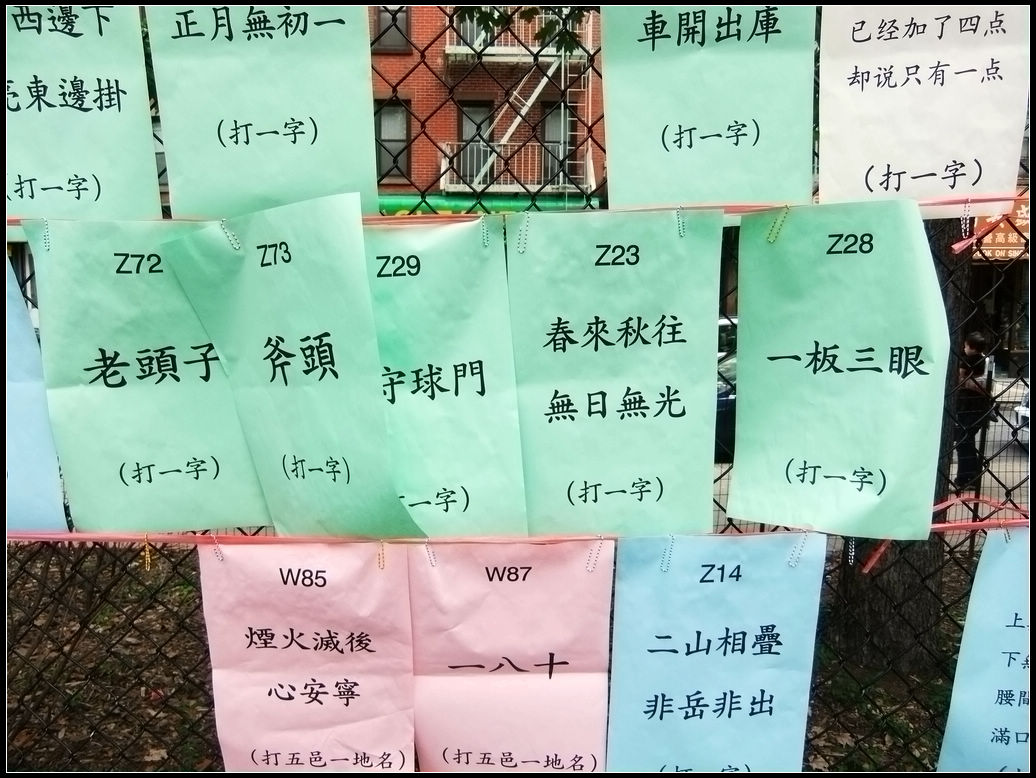 西邊下
東邊掛
打一字)
正月無初一
(打一字)
車開出庫
(打一字)
已经加了四点
却说只有一点
(打一字)
Z72
老頭子
(打一字)
Z73
斧頭
(打一字)
Z29
守球門
一字)
Z23
春來秋往
無日無光
(打一字)
Z28
一板三眼
(打一字)
W85
煙火滅後
心安寧
(打五邑一地名)
W87
一八十
(打五邑一地名)
Z14
二山相疊
非岳非出
(打一字)
上
下
腰間
滿口